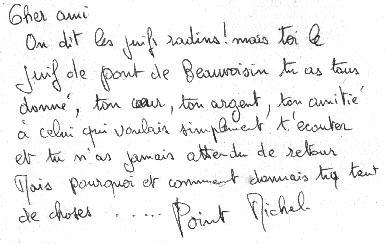 Cher ami
On dit les juifs radins ! mais toi le
juif de pont de Beauvoisin tu as tous
donné, ton cœur, ton argent, ton amitié
à celui qui voulais simplement t'écouter
et tu n'as jamais attendu de retour
Mais pourquoi et comment donnais tu tant
de choses ...... Point Michel